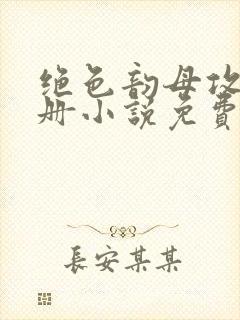 绝色韵母攻
册小说免费
長安某某